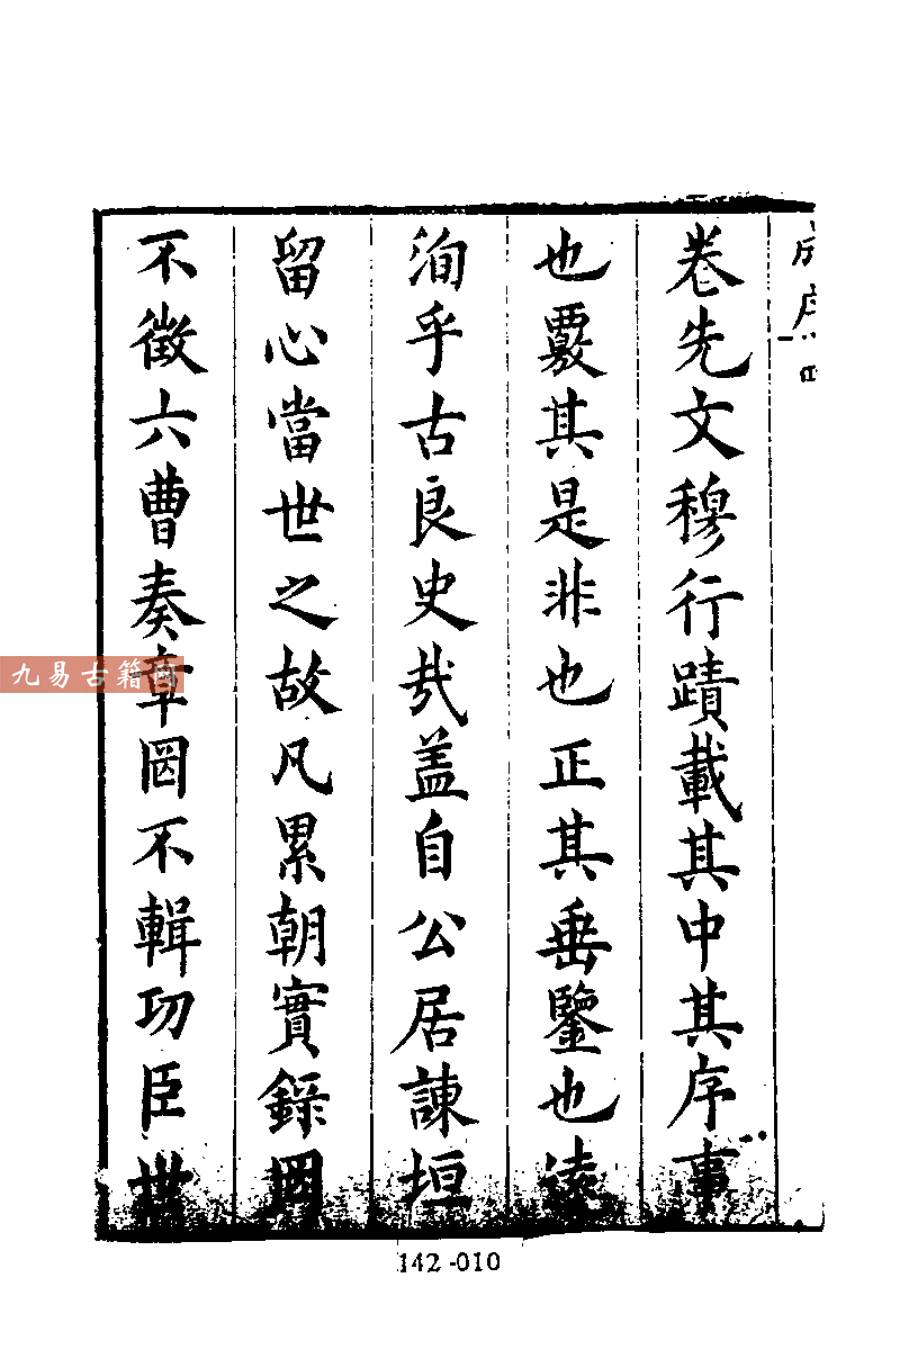 卷先文穆行蹟載其中其序事
也覈其是非也正其垂鑒也遠
洵乎古良史㢤盖自公居諫垣
留心當世之故凡累朝實錄罔
不徵六曹奏章罔不輯功臣世
九易古籍网
142-010